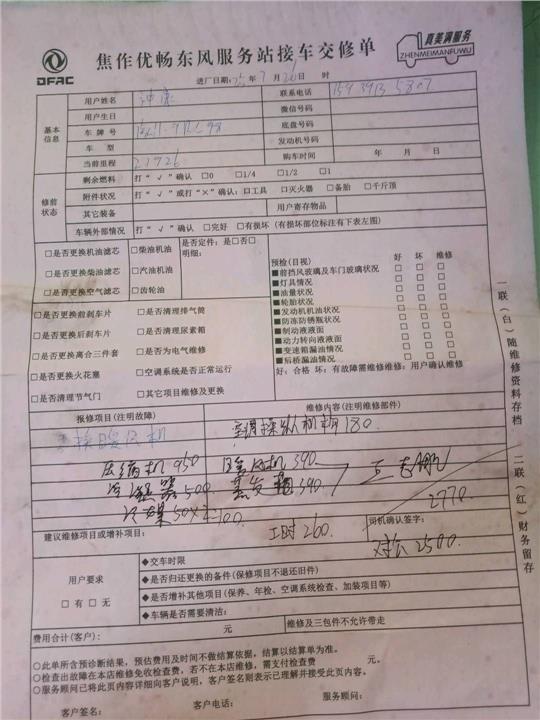 DFAC
焦作优畅东风服务站接车交修单
真美满服务
ZHENMEIMANFUWU
进厂日期: 25 年 7 月 26 日 时
基本信息
用户姓名
联系电话 159 3913 5807
用户生日
微信号码
车牌号
底盘号码
车型
发动机号码
当前里程 21926
购车时间 年 月 日
修前状态
剩余燃料 打“√”确认 □0 □1/4 □1/2 □1
附件状况 打“√”或打“×”确认: □工具 □灭火器 □备胎 □千斤顶
其它装备
用户寄存物品
车辆外部情况 打“√”确认 □完好 □有损坏 (有损坏部位标注有下表左图)
□是否更换机油滤芯 □柴油机油
□是否更换柴油滤芯 □汽油机油
□是否更换空气滤芯 □齿轮油
是否定件: 是□否□
明细:
□是否更换前刹车片 □是否清理排气筒
□是否更换后刹车片 □是否清理尿素箱
□是否更换离合三件套 □是否为电气维修
□是否更换火花塞 □空调系统是否正常运行
□是否清理节气门 □其它项目维修及更换
预检(目视) 好 坏 维修
■前挡风玻璃及车门玻璃状况 □ □ □
■灯具情况 □ □ □
■油量状况 □ □ □
■轮胎状况 □ □ □
■发动机机油状况 □ □ □
■防冻防锈瓶状况 □ □ □
■制动液液面 □ □ □
■动力转向液液面 □ □ □
■变速箱漏油情况 □ □ □
■后桥漏油情况 □ □ □
好: 合格 坏: 有故障需维修维修: 用户确认维修
报修项目(注明故障)
维修内容(注明维修部件)
换暖风机
空调操纵机构180.
压缩机 950 暖风机 390.
冷凝器 500 蒸发箱 390.
冷媒 50×2=100.
2770.
工时 260.
建议维修项目或增补项目:
司机确认签字:
对公 2500.
用户要求
□有 □无
◆交车时限
◆是否归还更换的备件(保修项目不退还旧件)
◆是否增补其他项目(保养、年检、空调系统检查、加装项目等)
◆车辆是否需要清洁:
费用合计(客户): 元
维修及三包件不允许带走
○此单所含预诊断结果, 预估费用及时间不做结算依据, 结算以结算单为准。
○检查出故障在本店维修免收检查费, 若不在本店维修, 需支付检查费 元。
○服务顾问已将此页内容详细向客户说明, 客户签名则表示已理解并接受此页内容。
客户签名: 客户电话: 服务顾问:
一联(白)随维修资料存档 二联(红)财务留存